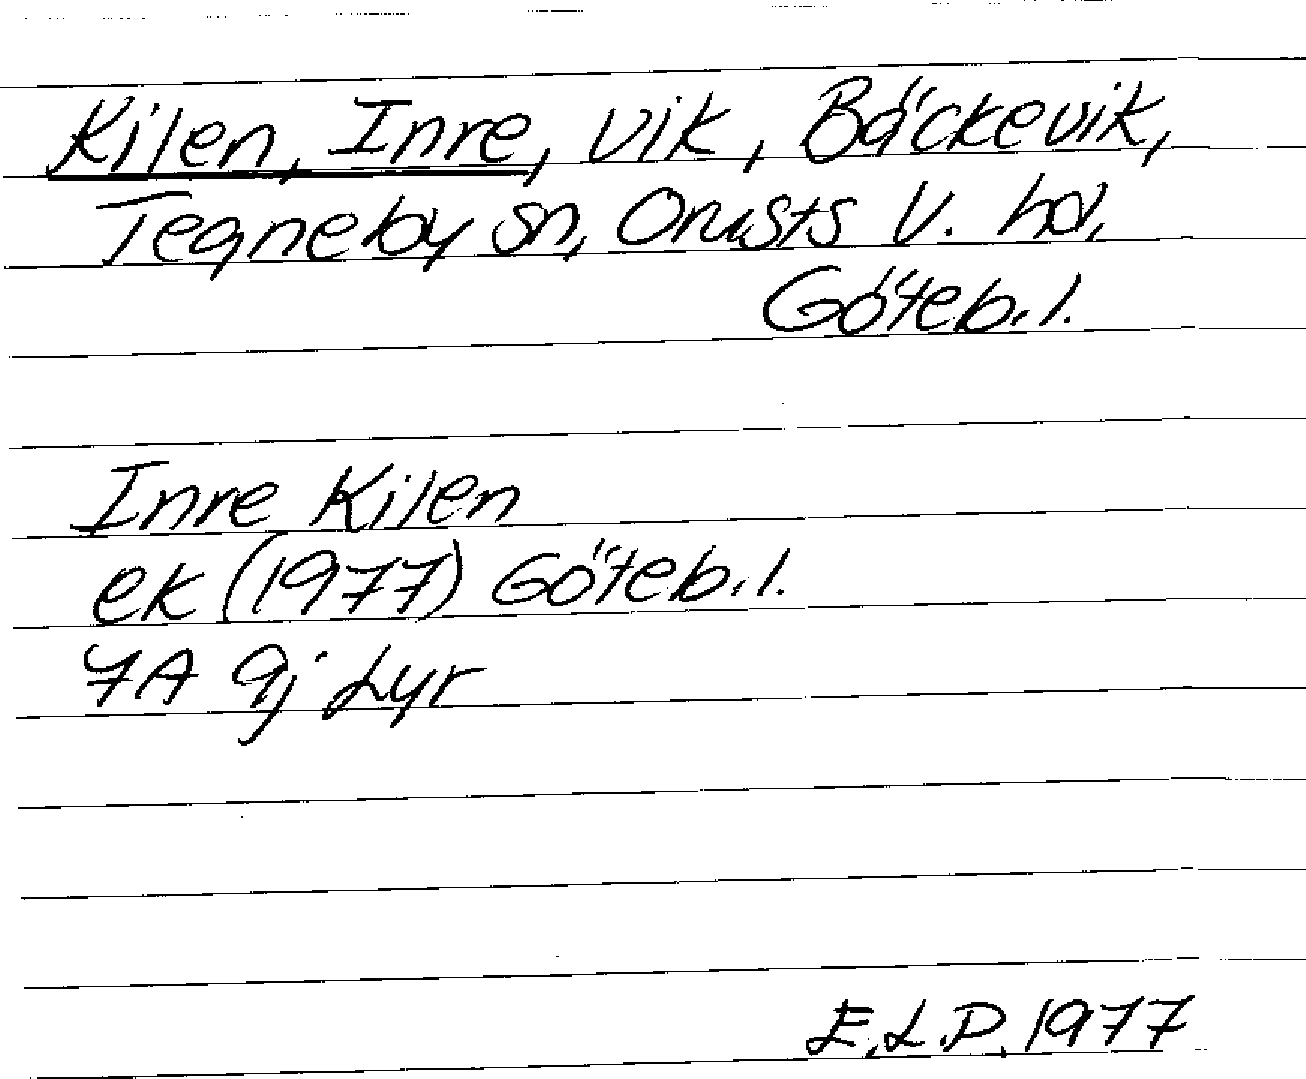 Kilen, Inre, vik, Bäckevik,
Tegneby sn, Orusts V. hd,
Göteb. l.
Inre Kilen
ek (1977) Göteb. l.
7A 9j Lyr
E.L.P. 1977